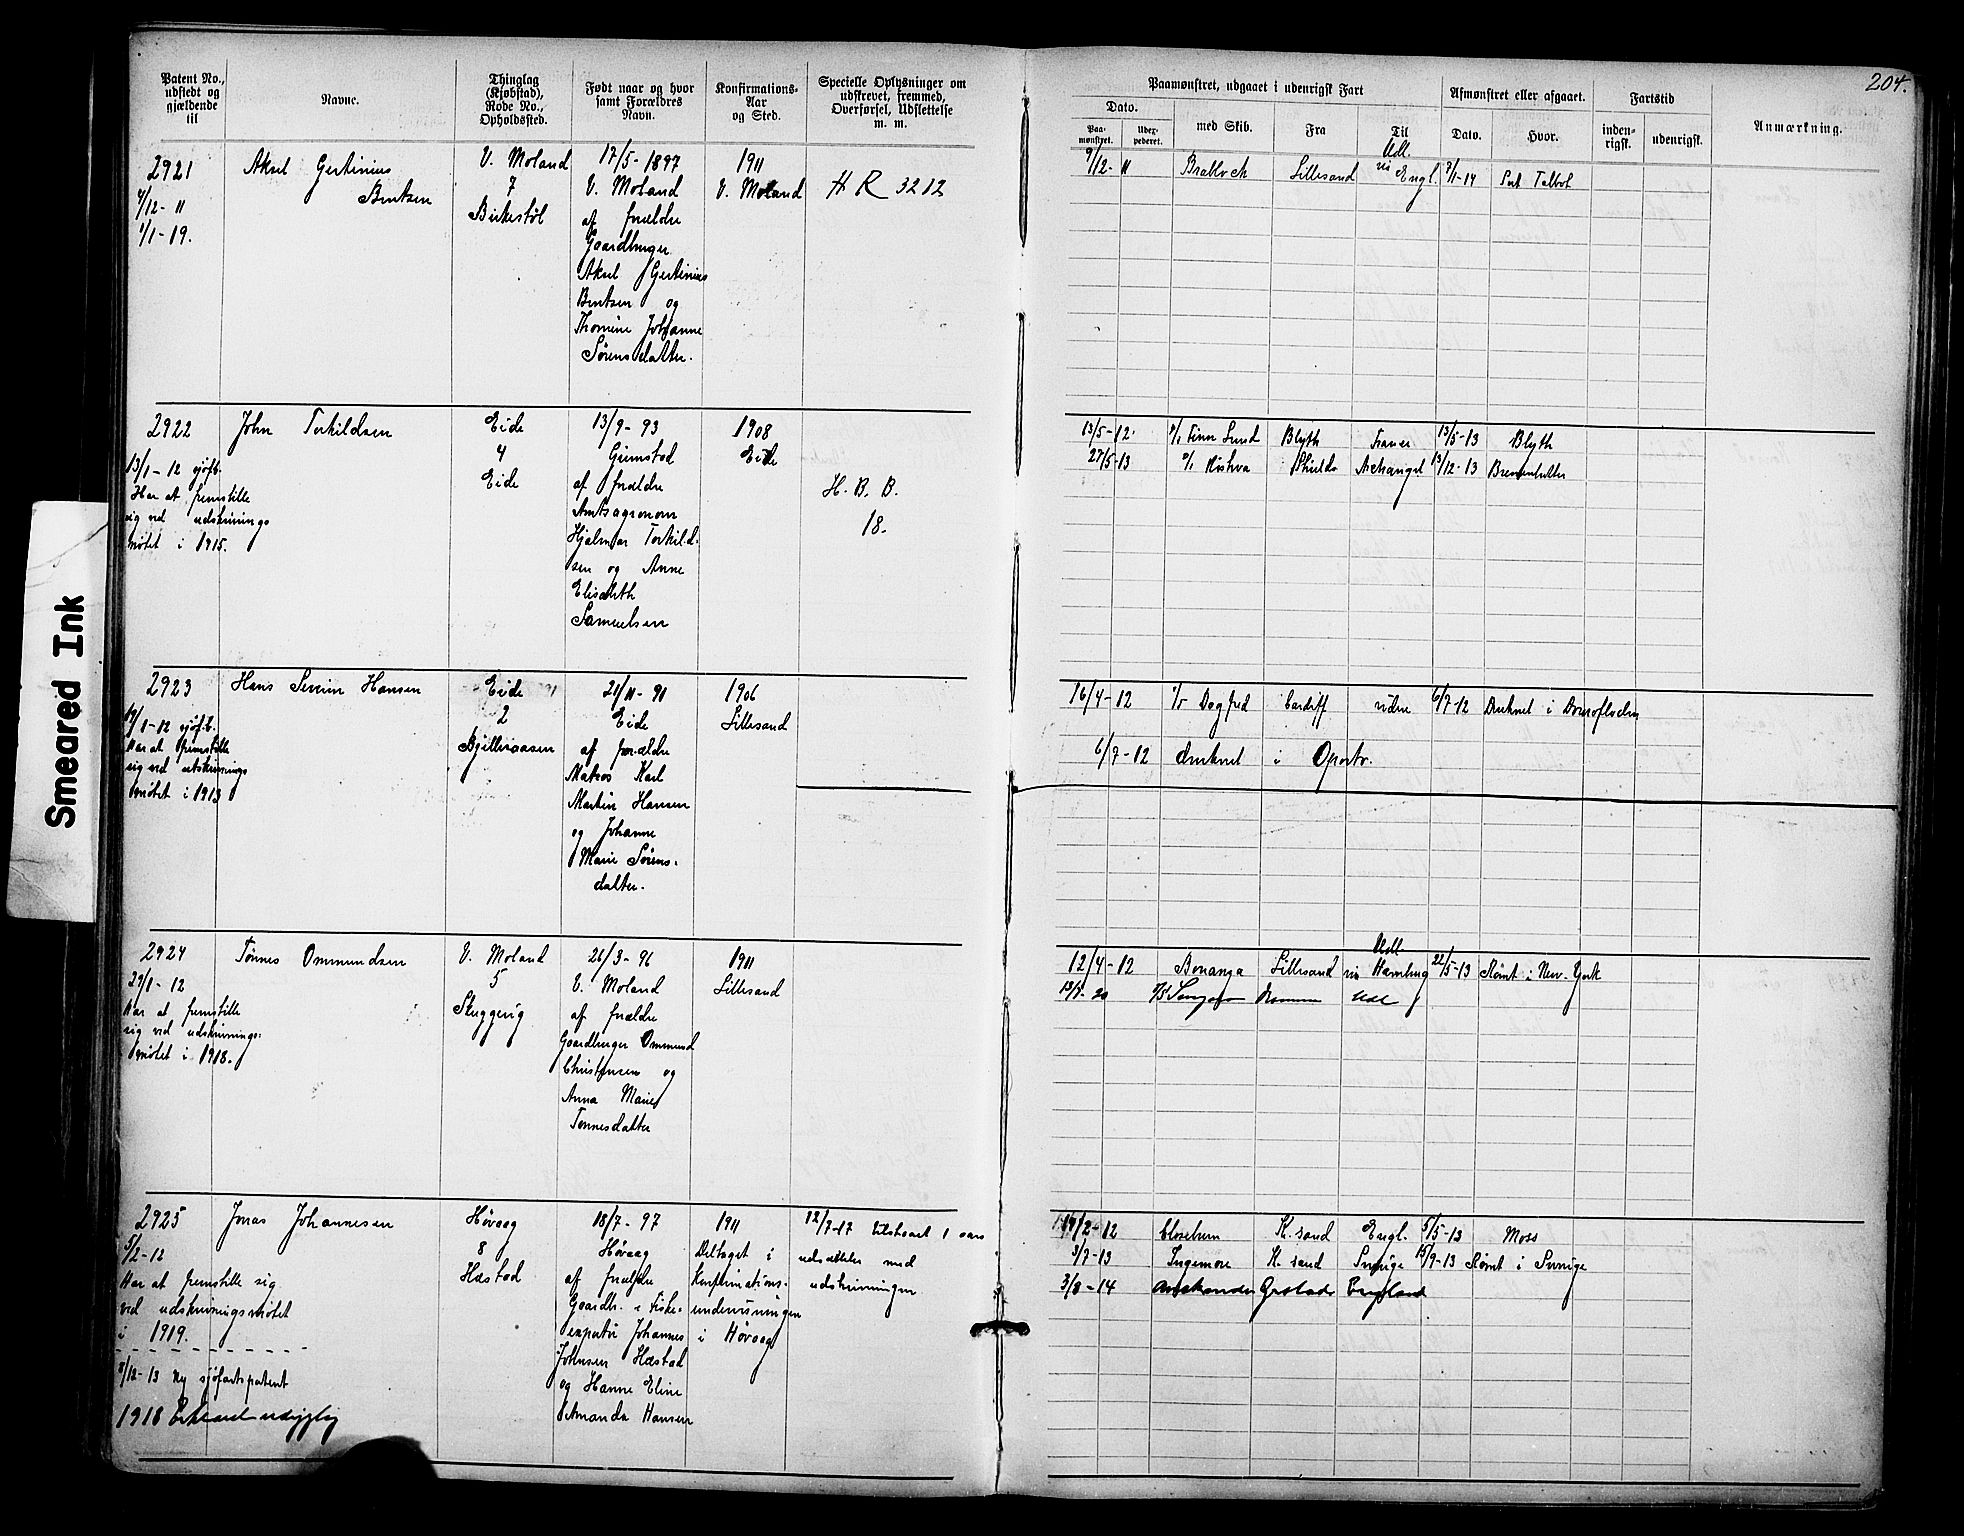 204.
Patent No., udstedt og gjældende til
Navne.
Thinglag (Kjøbstad), Rode No., Opholdssted.
Født naar og hvor samt Forældres Navn.
Konfirmations-Aar og Sted.
Specielle Oplysninger om udskrevet, fremmed, Overførsel, Udslettelse m. m.
Paamønstret, udgaaet i udenrigsk Fart
Dato.
Paa-mønstret.
Udex-pederet.
med Skib.
Fra
Til
Afmønstret eller afgaaet.
Dato.
Hvor.
Fartstid
inden-rigsk.
udenrigsk.
Anmærkning.
2921
9/12- 11
1/1-19.
Aksel Gertinius
Bentsen
V. Moland
7
Birkestøl
17/5-1897
V. Moland
af forældre
Gaardbruger
Aksel Gertinius
Bentsen og
Thomine Johanne
Sørensdatter.
1911
V. Moland
H R 3212
9/12- 11 Lillesand Udl. via Engl. Port Talbot
2922
13/1-12 sjøft.
Har at fremstille
sig ved udskrivnings
møtet i 1915.
John Torkildsen
Eide
4
Eide
13/9-93
Grimstad
af forældre
Amtsagronom
Hjalmar Torkild-
sen og Anne
Elisabeth
Samuelsen
1908
Eide
H. B. B.
18.
13/5-12 Finn Lund Blyth 13/5-13 Blyth
27/5-13 Shields Archangel 13/12-13
2923
sjøft.
Har at fremstille
sig ved utskrivnings
møtet i 1913
Hans Severin Hansen
Eide
2
21/11-91
Eide
af forældre
Matros Karl
Martin Hansen
og Johanne
Marie Sørens-
datter.
1906
Lillesand
16/4-12 Dagfred Cardiff videre 6/7-12 Druknet i
6/7-12 druknet i Oporto.
2924
29/1-12
Har at fremstille
sig ved udskrivnings-
møtet i 1918.
Tønnes Ommundsen
V. Moland
5
Skuggevig
26/3-96
V. Moland
af forældre
Gaardbruger Ommund
Christensen og
Anna Marie
Tønnesdatter
1911
Lillesand
12/4-12 Bonanza Lillesand Udl. via Hamburg 22/5-13 Rømt i New-York
2925
5/2-12
Har at fremstille sig
ved udskrivningsmøtet
i 1919.
8/12-13 Ny sjøfartspatent
1918
Jonas Johannesen
Høvaag
8
Hæstad
18/7-97
Høvaag
af forældre
Gaardb. & Fiske-
exportør Johannes
Johnsen Hæstad
og Hanne Eline
Amanda Hansen
1911
Deltaget i
Konfirmations-
undervisningen
i Høvaag
12/2-17 tilstaaet 1 aars
udsættelse med
udskrivningen
2-12 K.sand Engl. 5/5-13 Moss
3/7-13 Ingemore K.sand Sverige 15/9-13 Rømt i Sverige
3/8-14 England
Smeared Ink